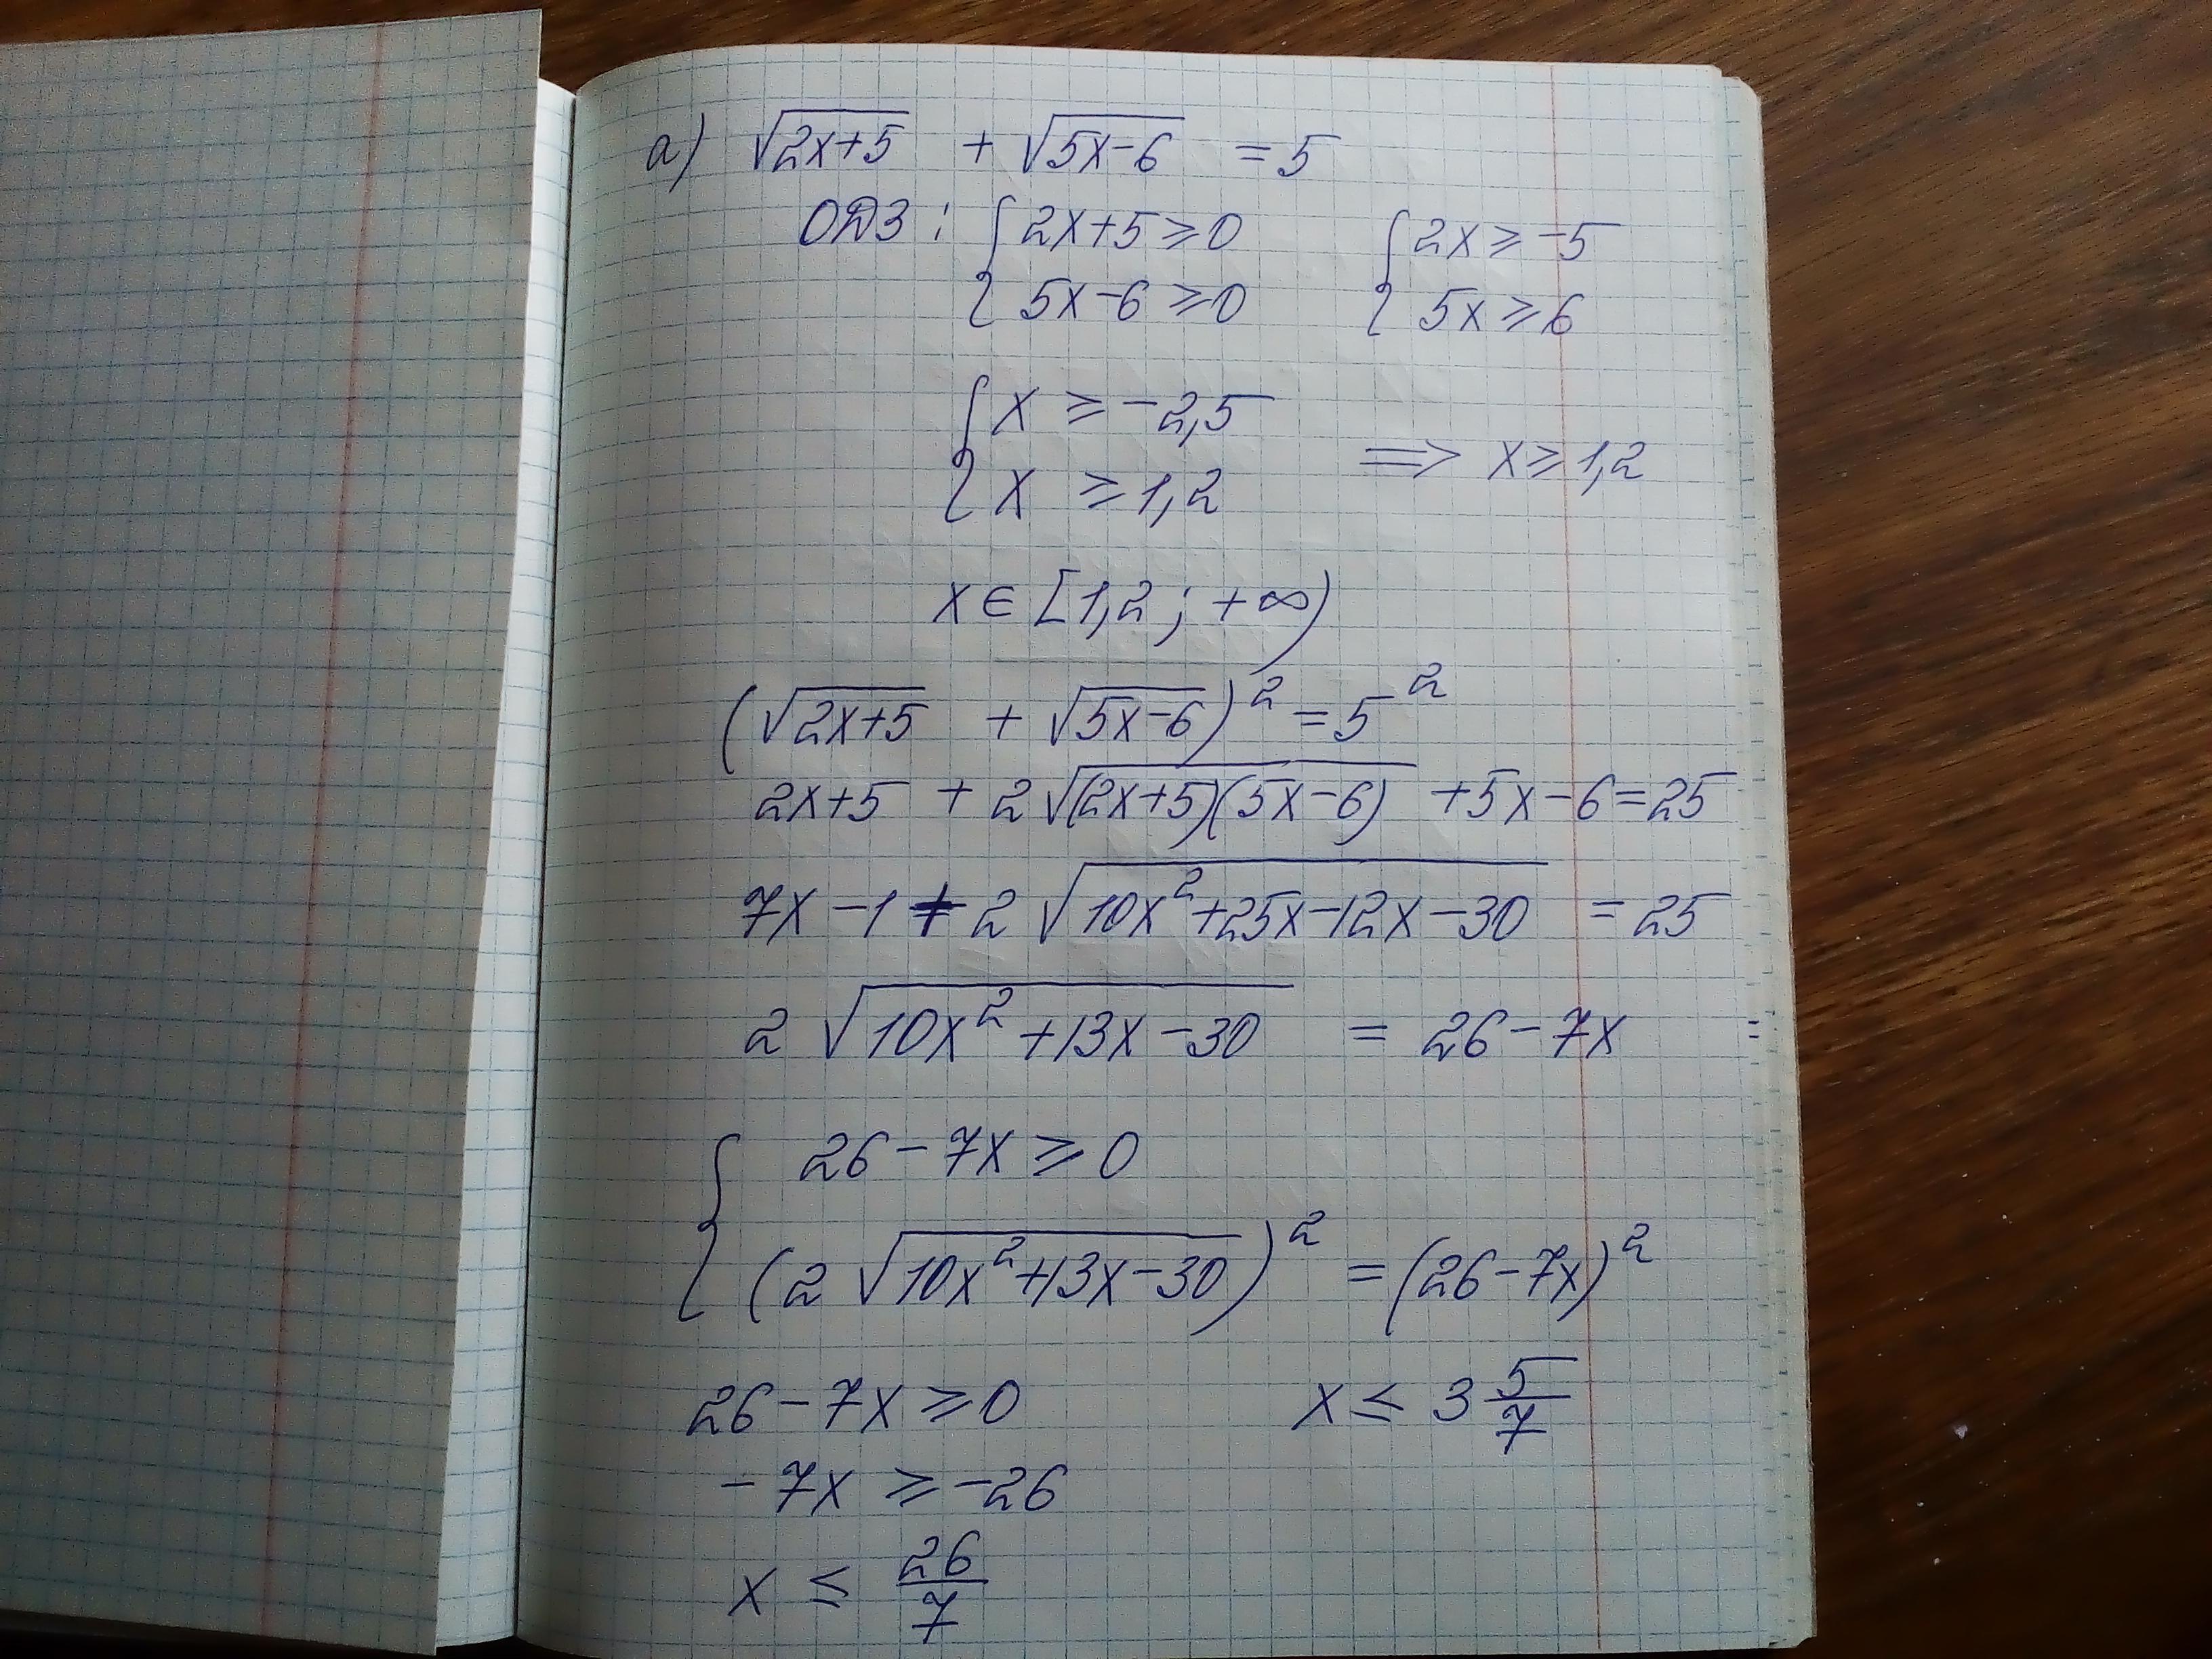 а) √(2x+5) + √(5x-6) = 5
ОДЗ: { 2x+5 ≥ 0 { 2x ≥ -5
5x-6 ≥ 0 5x ≥ 6
{ x ≥ -2,5
x ≥ 1,2 ⟹ x ≥ 1,2
x ∈ [1,2; +∞)
(√(2x+5) + √(5x-6))² = 5²
2x+5 + 2√((2x+5)(5x-6)) + 5x-6 = 25
7x - 1 + 2√(10x²+25x-12x-30) = 25
2√(10x²+13x-30) = 26-7x =
{ 26-7x ≥ 0
(2√(10x²+13x-30))² = (26-7x)²
26-7x ≥ 0 x ≤ 3 5/7
-7x ≥ -26
x ≤ 26/7